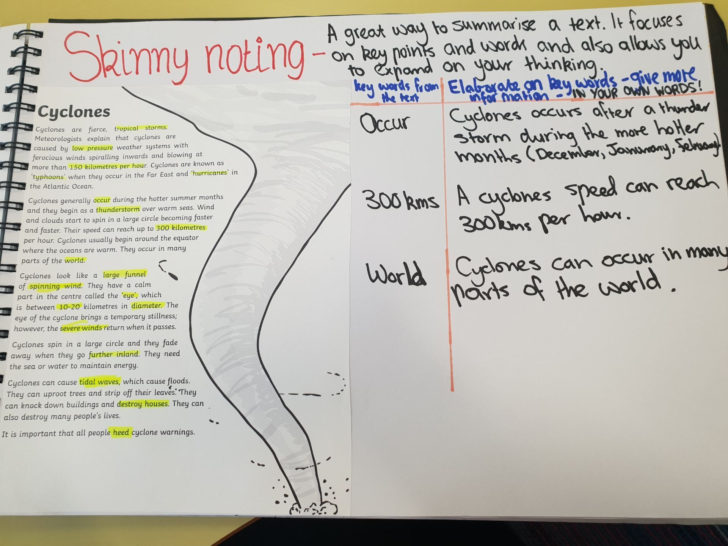 Skinny noting - A great way to summarise a text. It focuses
on key points and words and also allows you
to expand on your thinking.
Cyclones
Cyclones are fierce, tropical storms.
Meteorologists explain that cyclones are
caused by low pressure weather systems with
ferocious winds spiralling inwards and blowing at
more than 150 kilometres per hour. Cyclones are known as
'typhoons' when they occur in the Far East and 'hurricanes' in
the Atlantic Ocean.
Cyclones generally occur during the hotter summer months
and they begin as a thunderstorm over warm seas. Wind
and clouds start to spin in a large circle becoming faster
and faster. Their speed can reach up to 300 kilometres
per hour. Cyclones usually begin around the equator
where the oceans are warm. They occur in many
parts of the world.
Cyclones look like a large funnel
of spinning wind. They have a calm
part in the centre called the 'eye', which
is between 10-20 kilometres in diameter. The
eye of the cyclone brings a temporary stillness;
however, the severe winds return when it passes.
Cyclones spin in a large circle and they fade
away when they go further inland. They need
the sea or water to maintain energy.
Cyclones can cause tidal waves, which cause floods.
They can uproot trees and strip off their leaves. They
can knock down buildings and destroy houses. They can
also destroy many people's lives.
It is important that all people heed cyclone warnings.
key words from
the text
Elaborate on key words - give more
information - IN YOUR OWN WORDS!
Occur
Cyclones occurs after a thunder
storm during the more hotter
months (December, Janurary, February)
300kms
A cyclones speed can reach
300kms per hour.
World
Cyclones can occur in many
parts of the world.